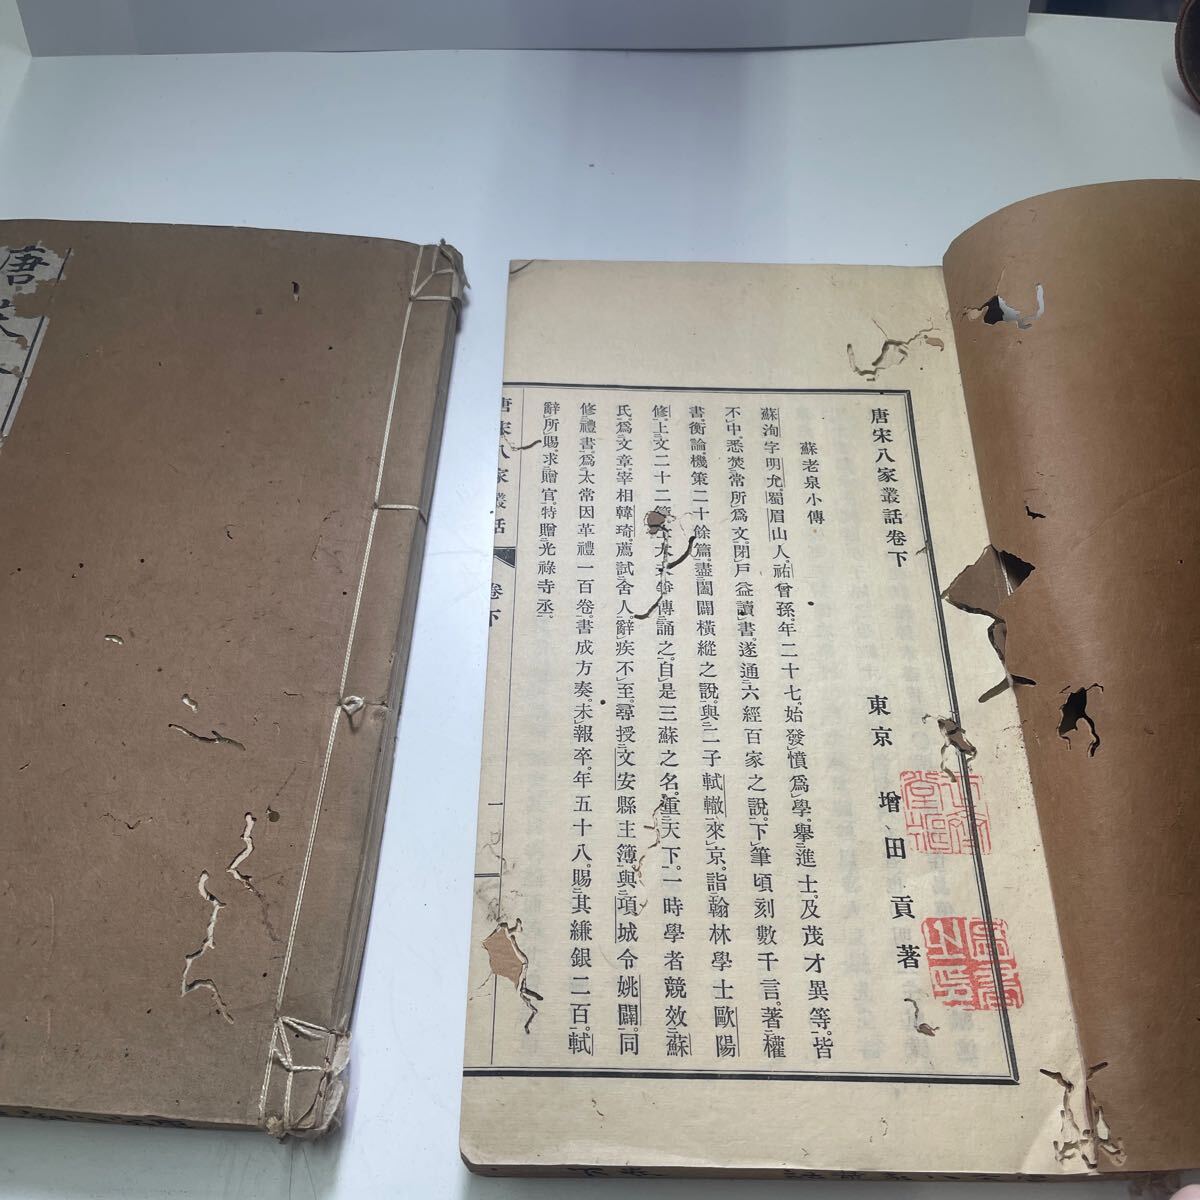 唐宋八家叢話卷下
東京 增田貢著
蘇老泉小傳
蘇洵字明允。蜀眉山人。祐曾孫。年二十七。始發憤爲學。擧進士。及茂才異等。皆
不中。悉焚常所爲文。閉戶益讀書。遂通六經百家之說。下筆頃刻數千言。著權
書衡論。機策二十餘篇。盡闔闢橫縱之說。與二子軾轍來京。詣翰林學士歐陽
修。上文二十二篇。士大夫爭傳誦之。自是三蘇之名。重天下。一時學者競效蘇
氏。爲文章。宰相韓琦。薦試舍人。辭疾不至。尋授文安縣主簿。與項城令姚闢。同
修禮書。爲太常因革禮一百卷。書成方奏。未報卒。年五十八。賜其縑銀二百。軾
辭所賜。求贈官。特贈光祿寺丞。
唐宋八家叢話
卷下
一
唐宋